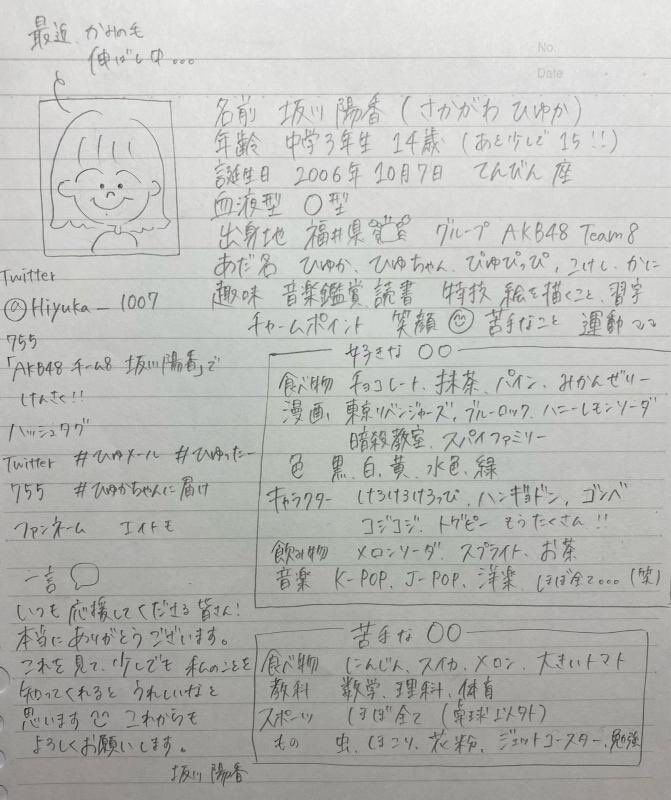 最近 かみのも
伸ばし中...
No.
Date
名前 坂川 陽香 (さかがわ ひゆか)
年齢 中学3年生 14歳 (あと少しで 15!!)
誕生日 2006年 10月7日 てんびん座
血液型 O型
出身地 福井県 グループ AKB48 Team8
あだ名 ひゆか、ひゆちゃん、ぴゆぴっぴ、こけし、かに
趣味 音楽鑑賞、読書 特技 絵を描くこと、習字
チャームポイント 笑顔 苦手なこと 運動
Twitter
@Hiyuka_1007
755
「AKB48 チーム8 坂川陽香」で
けんさく!!
ハッシュタグ
Twitter #ひゆメール #ひゆったー
755 #ひゆかちゃんに届け
ファンネーム エイトモ
一言
いつも応援してくださる皆さん!
本当にありがとうございます。
これを見て、少しでも 私のことを
知ってくれると うれしいなと
思います これからも
よろしくお願いします。
坂川 陽香
好きな 〇〇
食べ物 チョコレート、抹茶、パイン、みかんゼリー
漫画 東京リベンジャーズ、ブルーロック、ハニーレモンソーダ
暗殺教室、スパイファミリー
色 黒、白、黄、水色、緑
キャラクター けろけろけろっぴ、ハンギョドン、ゴンベ
コジコジ、トゲピー もうたくさん!!
飲み物 メロンソーダ、スプライト、お茶
音楽 K-POP、J-POP、洋楽、ほぼ全て...(笑)
苦手な 〇〇
食べ物 にんじん、スイカ、メロン、大きいトマト
教科 数学、理科、体育
スポーツ ほぼ全て (卓球以外)
もの 虫、ほこり、花粉、ジェットコースター、勉強